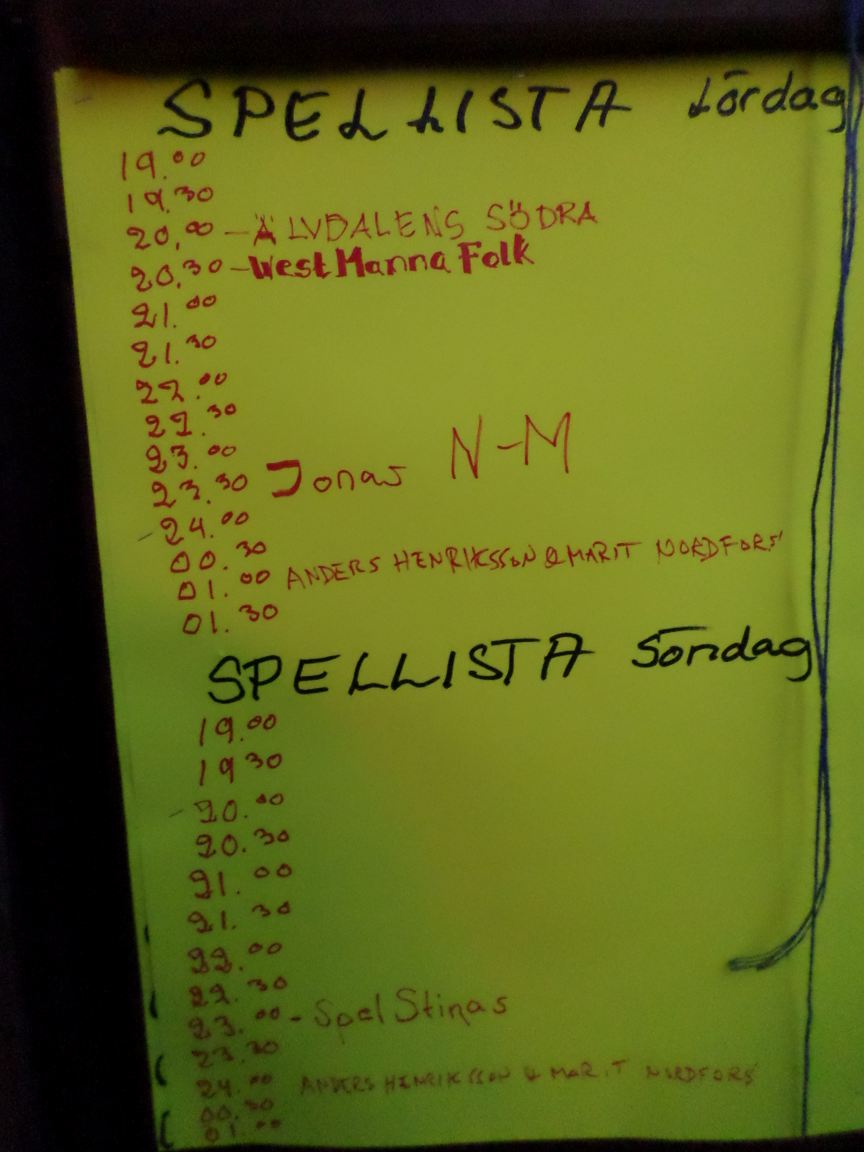 SPELLISTA Lördag
19.00
19.30
20.00 – ÄLVDALENS SÖDRA
20.30 – West Manna Folk
21.00
21.30
22.00
22.30
23.00
23.30 Jonas N-M
24.00
00.30
01.00 ANDERS HENRIKSSON & MARIT NORDFORS
01.30
SPELLISTA Söndag
19.00
19 30
20.00
20.30
21.00
21.30
22.00
22.30
23.00 - Spel Stinas
23.30
24.00 ANDERS HENRIKSSON & MARIT NORDFORS
00.30
01.00